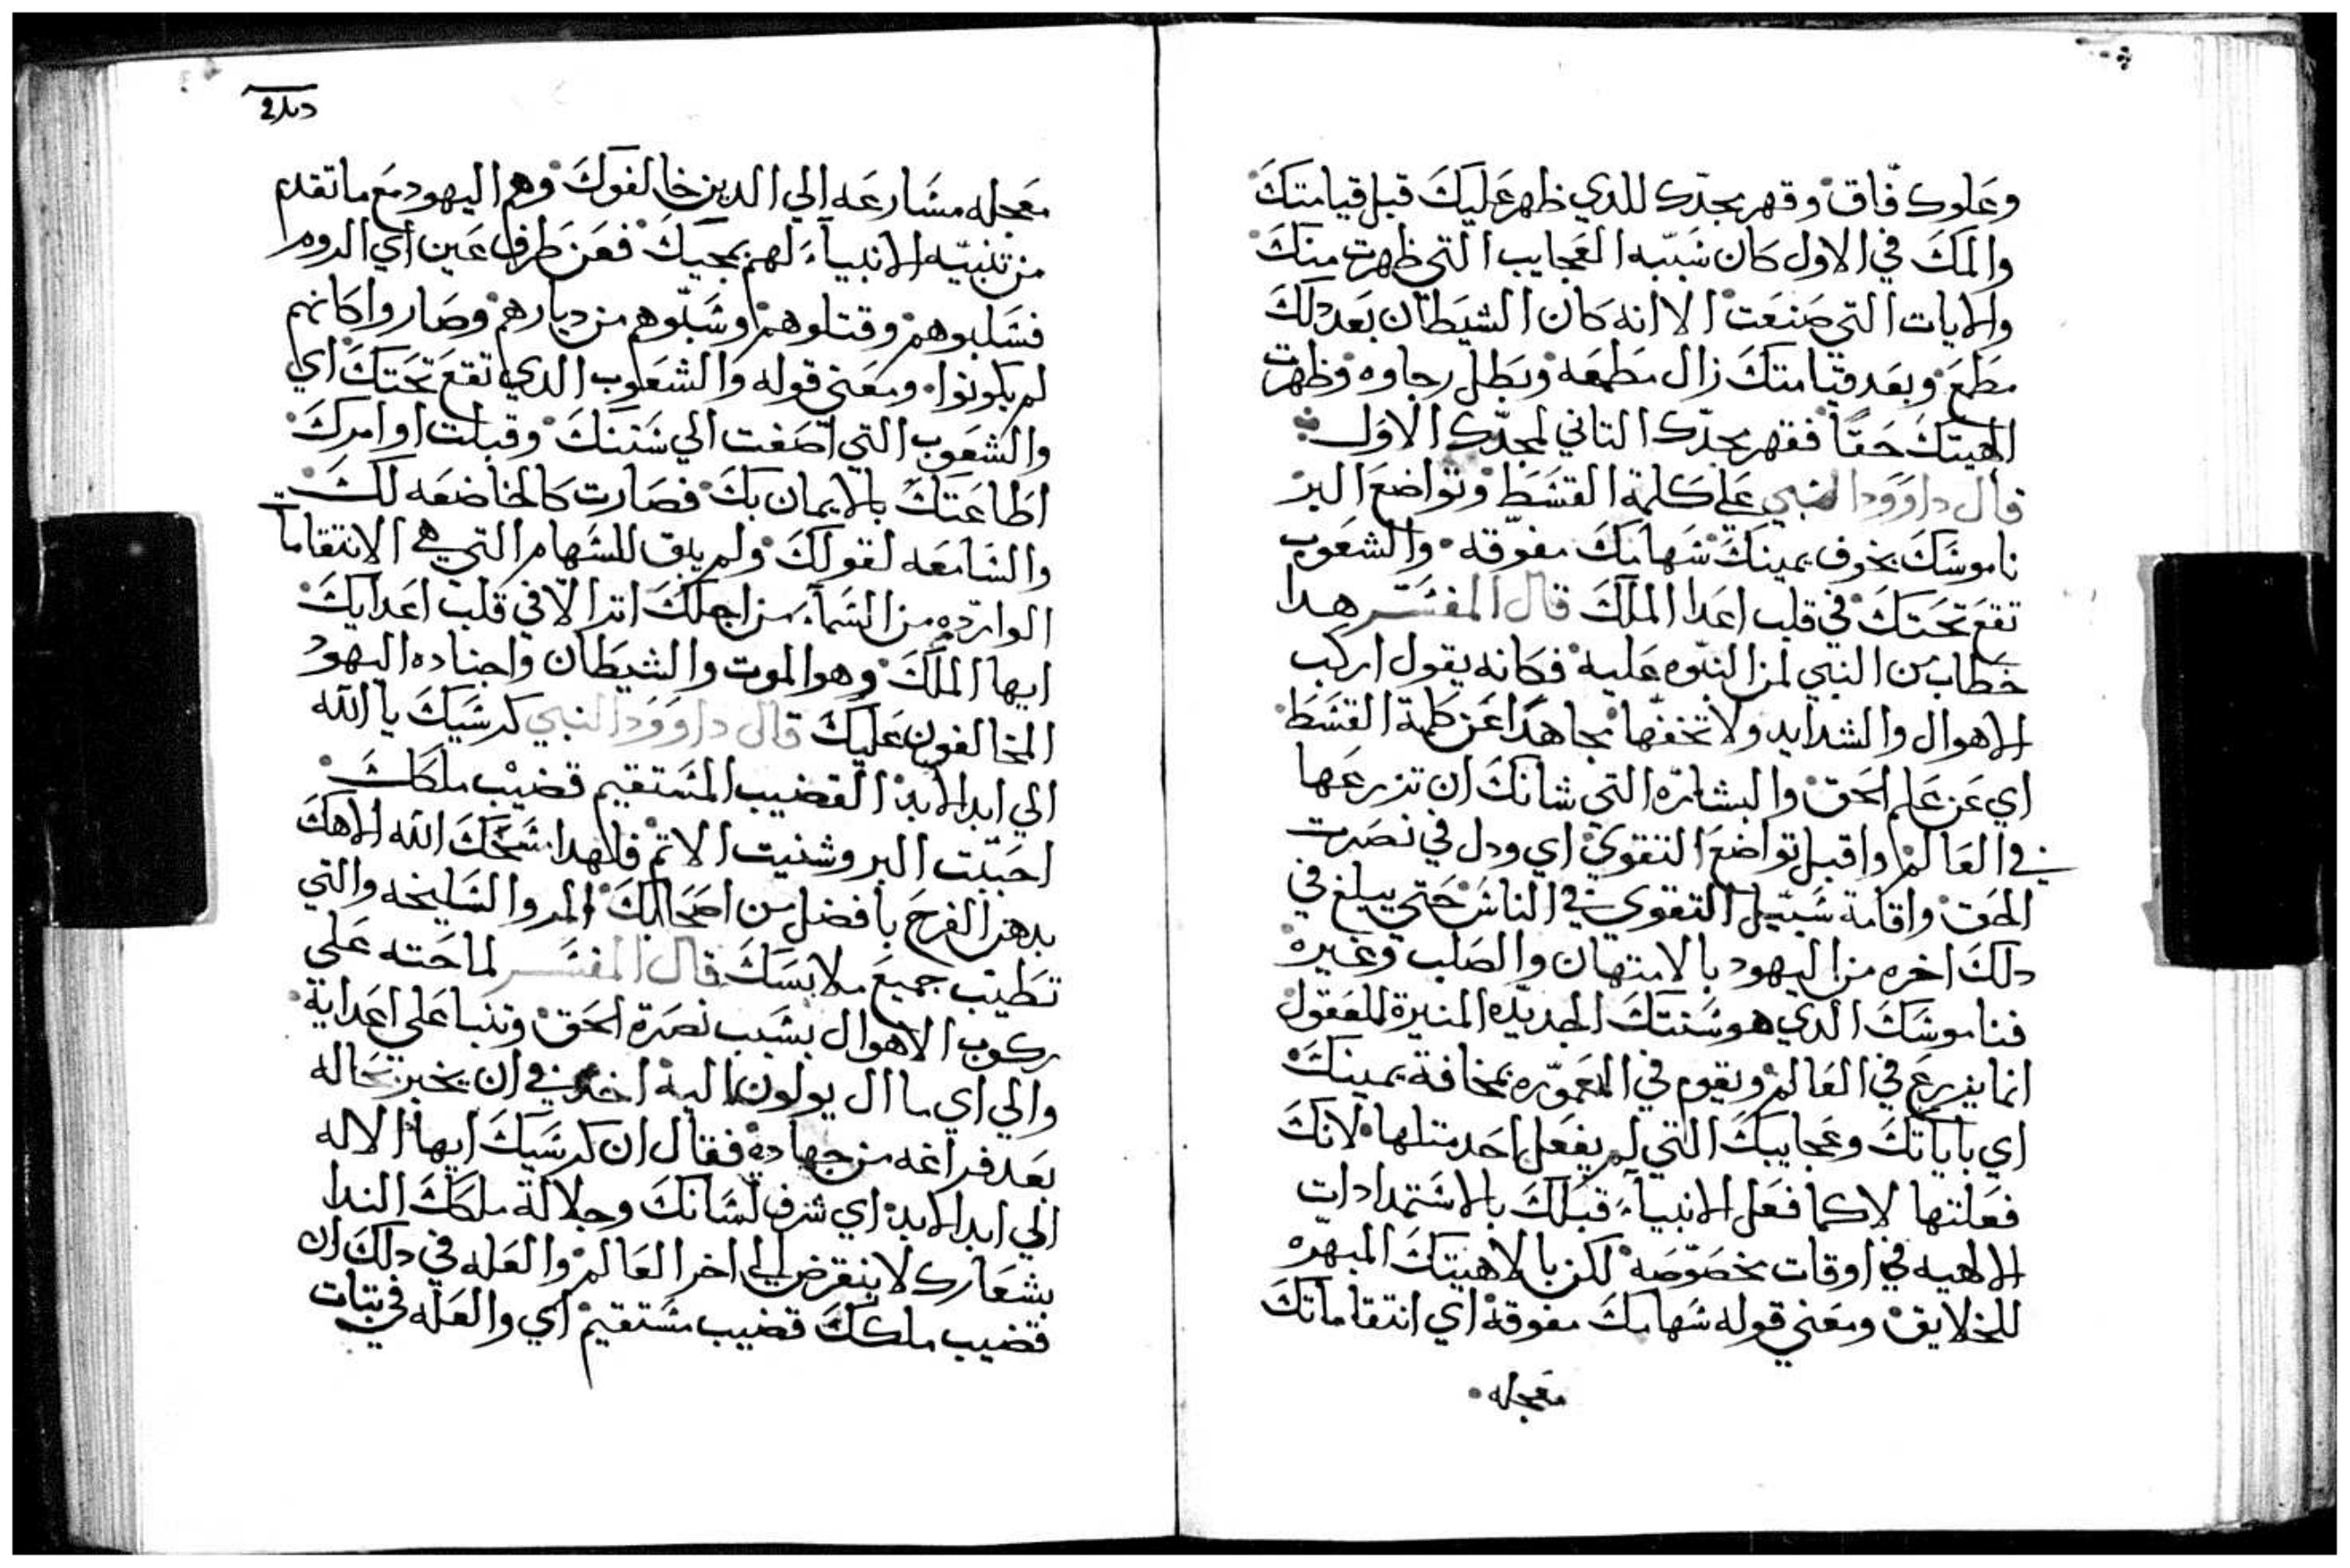 وعلوك فاق وقهر مجدك للدي ظهر عليك قبل قيامتك
والمك في الاول كان سببه العجايب التي ظهرت منك
والايات التي صنعت الا انه كان الشيطان بعد دلك
مطمع وبعد قيامتك زال مطمعه وبطل رجاوه وظهرت
الهيتك حقا فقهر مجدك التاني لمجدك الاول
قال داوود النبي على كلمة القسط وتواضع البر
ناموسك بخوف يمينك سهامك مفوقه والشعوب
تقع تحتك في قلب اعدا الملك قال المفسر هدا
خطاب من النبي لمن النبوه عليه فكانه يقول اركب
الاهوال والشدايد ولا تخفها مجاهدا عن كلمة القسط
اي عن علم الحق والبشاره التي شانك ان تزرعها
في العالم واقبل تواضع التقوي اي ودل في نصرت
الحق واقامة سبيل التقوي في الناس حتي يبلغ في
دلك اخره من اليهود بالامتهان والصلب وغيره
فناموسك الدي هو سنتك الجديده المنيرة للعقول
انما يزرع في العالم ويقوم في المعموره بمخافة يمينك
اي باياتك وعجايبك التي لم يفعل احد متلها لانك
فعلتها لا كما فعل الانبياء قبلك بالاستمدادات
الالهيه في اوقات مخصوصه لكن بالاهيتك المبهره
للخلايق ومعني قوله سهامك مفوقة اي انتقاماتك
معجله
معجله مسارعه الي الدين خالفوك وهم اليهود مع ما تقدم
من تنبيه الانبياء لهم بمجيك فعن طرف عين اي الروم
فسلبوهم وقتلوهم وسبوهم من ديارهم وصاروا كانهم
لم يكونوا ومعني قوله والشعوب الدي تقع تحتك اي
والشعوب التي اصغت الي سننك وقبلت اوامرك
اطاعتك بالايمان بك فصارت كالخاضعه لك
والسامعه لقولك ولم يبق للسهام التي هي الانتقامات
الوارده من السماء من اجلك اترا الا في قلب اعدايك
ايها الملك وهو الموت والشيطان واجناده اليهود
المخالفون عليك قال داوود النبي كرسيك يا الله
الي ابد الابد القضيب المستقيم قضيب ملكك
احببت البر وشنيت الاتم فلهدا مسحك الله الاهك
بدهن الفرح بافضل من اصحابك المر والسليخه والتي
تطيب جميع ملابسك قال المفسر لما حته على
ركوب الاهوال بسبب نصرة الحق وتنبا على اعدايه
والي اي ما ال يولون اليه اخد في ان يخبر بحاله
بعد فراغه من جهاده فقال ان كرسيك ايها الاله
الي ابد الابد اي شرف لسانك وجلالة ملكك الندا
بشعارك لا ينقرض الي اخر العالم والعله في دلك ان
قضيب ملكك قضيب مستقيم اي والعله في تبات